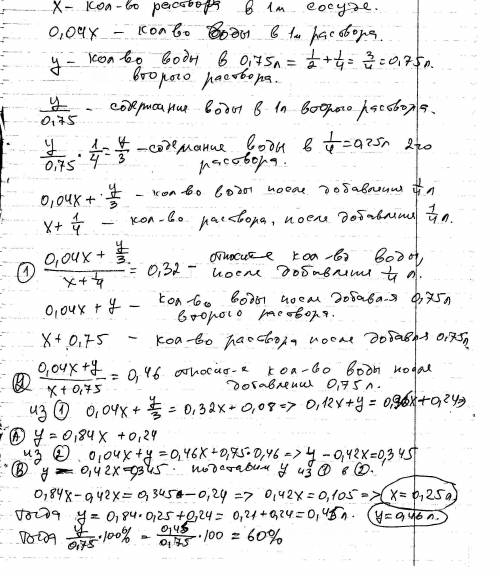 X - кол-во раствора в 1м сосуде.
0,04X - кол-во воды в 1м растворе.
y - кол-во воды в 0,75л = 1/2 + 1/4 = 3/4 = 0,75л.
второго раствора.
y/0,75 - содержание воды в 1л второго раствора.
y/0,75 · 1/4 = y/3 - содержание воды в 1/4 = 0,25л 2го
раствора.
0,04X + y/3 - кол-во воды после добавления 1/4 л
X + 1/4 - кол-во раствора, после добавления 1/4 л.
① (0,04X + y/3)/(X + 1/4) = 0,32 - относит-е кол-во воды,
после добавления 1/4 л.
0,04X + y - кол-во воды после добавл-я 0,75л
второго раствора.
X + 0,75 - кол-во раствора после добавл 0,75л
② (0,04X + y)/(X + 0,75) = 0,46 относит-е кол-во воды после
добавления 0,75л.
из ① 0,04X + y/3 = 0,32X + 0,08 => 0,12X + y = 0,96X + 0,24 =>
Ⓐ y = 0,84X + 0,24
из ② 0,04X + y = 0,46X + 0,75·0,46 => y - 0,42X = 0,345
Ⓑ y - 0,42X = 0,345. подставим y из ① в ②.
0,84X - 0,42X = 0,345 - 0,24 => 0,42X = 0,105 => X = 0,25л
тогда y = 0,84·0,25 + 0,24 = 0,21 + 0,24 = 0,45л. y = 0,46л.
тогда y/0,75 · 100% = 0,45/0,75 · 100 = 60%